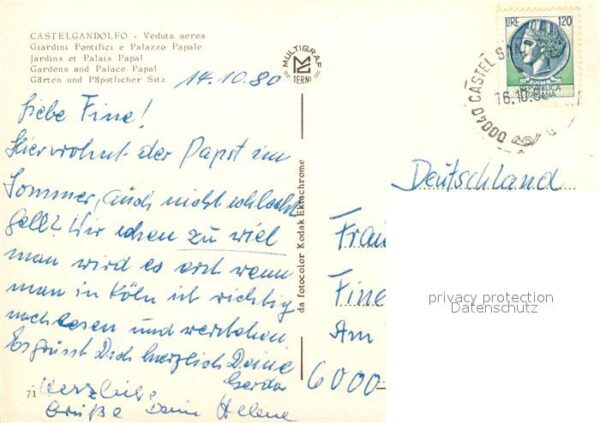 CASTELGANDOLFO - Veduta aerea
Giardini Pontifici e Palazzo Papale
Jardins et Palais Papal
Gardens and Palace Papal
Gärten und Päpstlicher Sitz
MULTIGRAF
TERNI
LIRE 120
REPUBBLICA ITALIANA
00040 CASTEL
16.10.80
14.10.80
Liebe Fine!
Hier wohnt der Papst im
Sommer, auch nicht schlecht
gell? Wir sehen zu viel
man wird es erst wenn
man in Köln ist richtig
nachlesen und verstehen.
Es grüsst Dich herzlich Deine
Gerda
Herzliche
Grüße Deine Helene
71
da fotocolor Kodak Ektachrome
Deutschland
Frau
Fine
Am
6000
privacy protection
Datenschutz